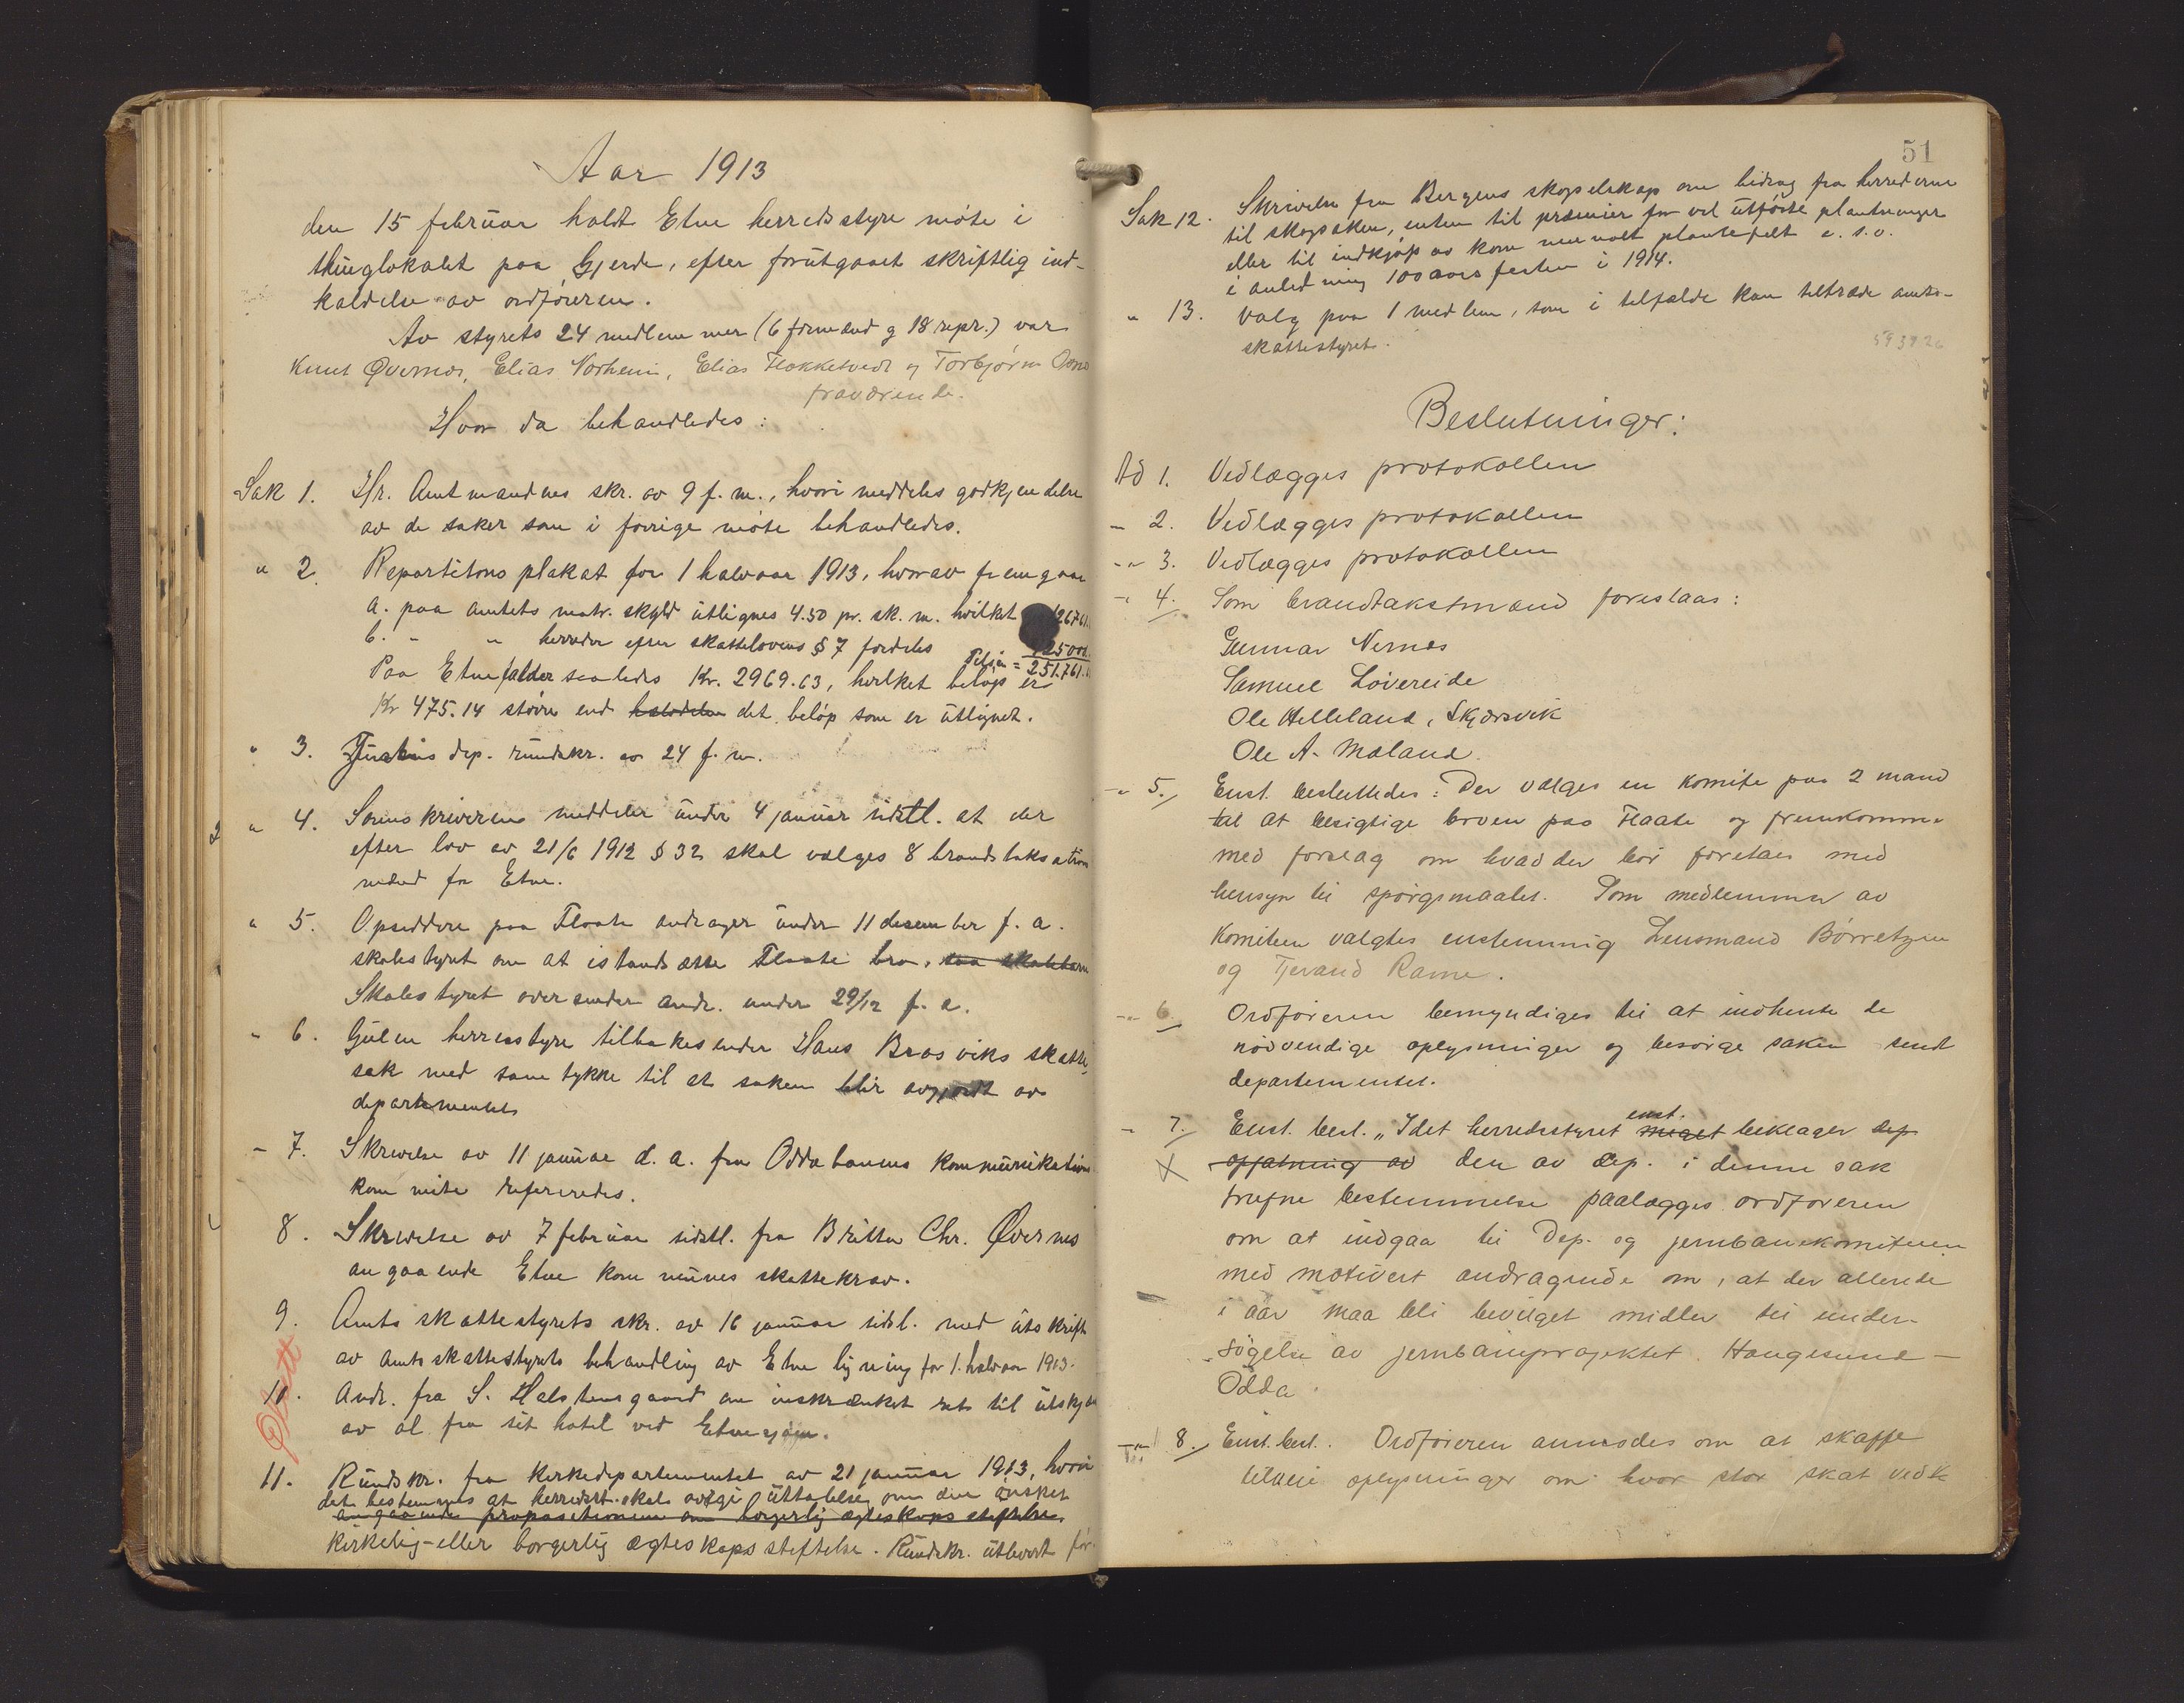 Aar 1913
den 15 februar holdt Etne herredsstyre møte i
thinglokalet paa Gjerde, efter forutgaaet skriftlig ind-
kaldelse av ordføreren.
Av styrets 24 medlemmer (6 formænd og 18 repr.) var
Knut Øvernes, Elias Norheim, Elias Flokketvedt og Torbjørn
fraværende.
Hvor da behandledes:
Sak 1. Hr. Amtmandens skr. av 9 f. m., hvori meddeles godkjendelse
av de saker som i forrige møte behandledes.
" 2. Repartitons plakat for 1 halvaar 1913, hvorav fremgaar
a. paa amtets matr. skyld utlignes 4.50 pr. sk. m. hvilket
b. - " herreder efter skattelovens § 7 fordeles
Tilsm = 251.761.
Paa Etne falder saaledes Kr. 2969.63, hvilket beløp er
Kr 475.14 større end det beløp som er utlignet.
" 3. Justis dep. rundskr. av 24 f. m.
" 4. Sorenskriveren meddeler under 4 januar sidstl. at der
efter lov av 21/6 1912 § 32 skal vælges 8 brandstaksation
mænd for Etne.
" 5. Opsiddere paa Flaate andrager under 11 desember f. a.
skolestyret om at istandsætte Flaate bro.
Skolestyret oversender andr. under 29/12 f. a.
" 6. Gulen herredsstyre tilbakesender Hans Brosviks skatte,
sak med samtykke til at saken blir avgjordt av
departementet
- 7. Skrivelse av 11 januar d. a. fra Oddabanens kommunikations
komite refereredes.
8. Skrivelse av 7 februar sidstl. fra Britta Chr. Øvernes
angaaende Etne kommunes skattekrav.
9. Amtsskattestyrets skr. av 16 januar sidstl. med utskrift
av amtsskattestyrets behandling av Etne ligning for 1. halvaar 1913.
10. Andr. fra S. Halstensgaard om inskrænket ret til utskjænk
av øl fra sit hotel ved Etnesjøen.
11. Rundskr. fra kirkedepartementet av 21 januar 1913, hvori
det bestemmes at herredsst. skal avgi uttalelse om den ønsker
angaaende propositionen om borgerlig ægteskaps stiftelse
kirkelig- eller borgerlig ægteskapsstiftelse. Rundskr. utlevert før.
51
Sak 12. Skrivelse fra Bergens skogselskap om bidrag fra herrederne
til skogsaken, enten til præmier for vel utførte plantninger
eller til indkjøp av kommunalt plantefelt e. s. v.
i anledning 100 aars festen i 1914.
" 13. Valg paa 1 medlem, som i tilfælde kan tiltræde amts-
skattestyret.
Beslutninger:
Ad 1. Vedlægges protokollen
- 2. Vedlægges protokollen
-"- 3. Vedlægges protokollen
-" 4. Som brandtakstmænd foreslaas:
Gunnar Nernes
Samuel Løvereide
Ole Helleland, Skjærsvik
Ole A. Mæland
-" 5. Enst. besluttedes: Der vælges en komite paa 2 mand
til at besigtige broen paa Flaate og fremkomme
med forslag om hvad der bør foretaes med
hensyn til spørgsmaalet. Som medlemmer av
komiteen valgtes enstemmig Lensmand Børretzen
og Tjerand Rame.
-"- 6. Ordføreren bemyndiges til at indhente de
nødvendige oplysninger og besørge saken sendt
departementet.
- 7. Enst. besl. "Idet herredsstyret enst. meget beklager dep
opfatning av den av dep. i denne sak
trufne bestemmelse paalægges ordføreren
om at indgaa til Dep. og jernbanekomiteen
med motivert andragende om, at der allerede
i aar maa bli bevilget midler til under-
søgelse av jernbaneprojektet Haugesund -
Odda.
-"- 8. Enst. besl. Ordføreren anmodes om at skaffe
tilveie oplysninger om hvor stor skat vedk